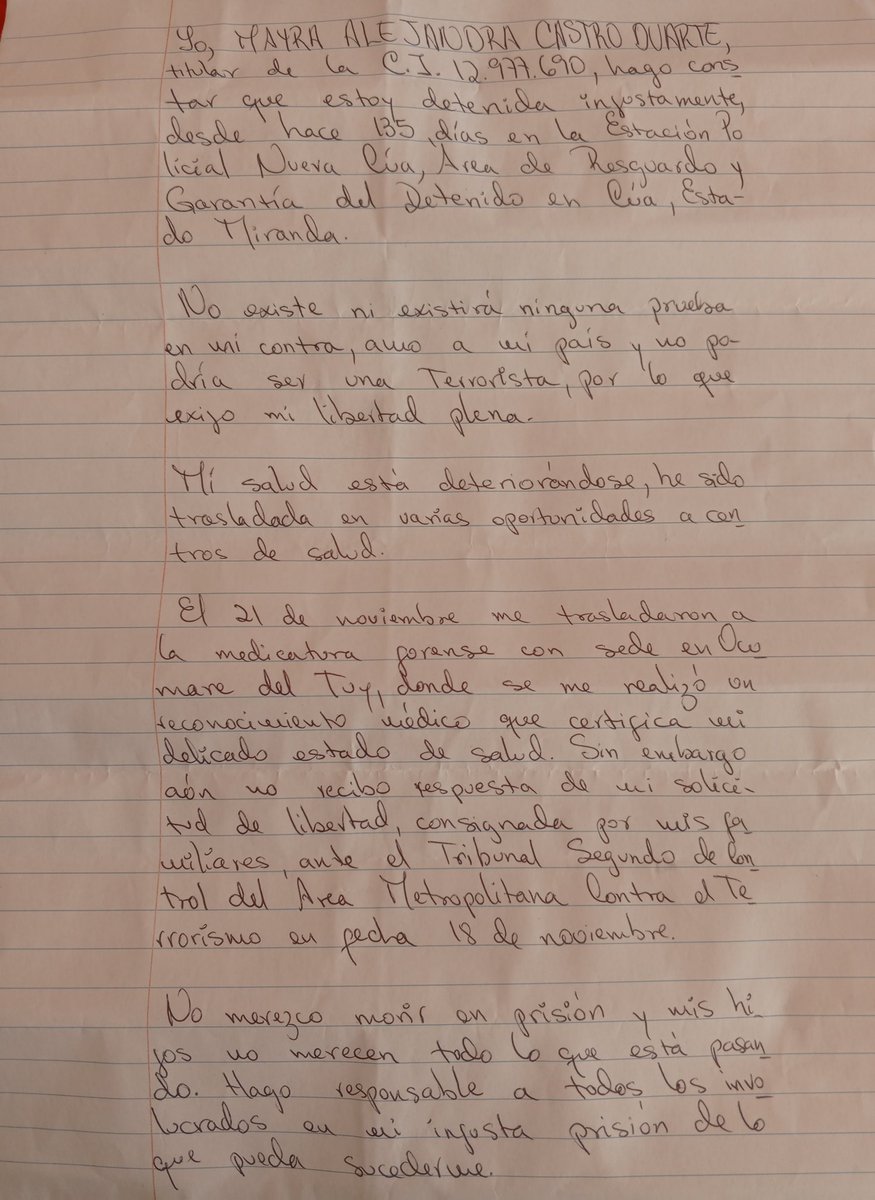 Yo, MAYRA ALEJANDRA CASTRO DUARTE,
titular de la C.I. 12.977.690, hago cons
tar que estoy detenida injustamente,
desde hace 135 días en la Estación Po
licial Nueva Cúa, Área de Resguardo y
Garantía del Detenido en Cúa, Esta-
do Miranda.
No existe ni existirá ninguna prueba
en mi contra, amo a mi país y no po-
dría ser una Terrorista, por lo que
exijo mi libertad plena.
Mi salud está deteriorándose, he sido
trasladada en varias oportunidades a cen
tros de salud.
El 21 de noviembre me trasladaron a
la medicatura forense con sede en Ocu
mare del Tuy, donde se me realizó un
reconocimiento médico que certifica mi
delicado estado de salud. Sin embargo
aún no recibo respuesta de mi solici-
tud de libertad, consignada por mis fa
miliares, ante el Tribunal Segundo de Con
trol del Área Metropolitana Contra el Te
rrorismo en fecha 18 de noviembre.
No merezco morir en prisión y mis hi
jos no merecen todo lo que está pasan
do. Hago responsable a todos los invo
lucrados en mi injusta prisión de lo
que pueda sucederme.